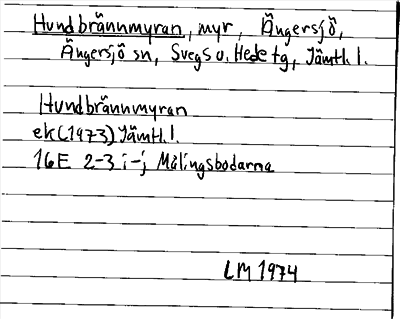 Hundbrännmyran, myr, Ängersjö,
Ängersjö sn, Svegs o. Hede tg, Jämtl. l.
Hundbrännmyran
ek (1973) Jämtl. l.
16E 2-3 i-j Målingsbodarna
LM 1974